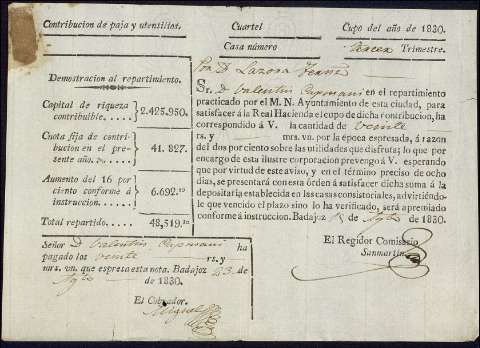 Contribucion de paja y utensilios. Cuartel Cupo del año de 1830.
Casa número Tercer Trimestre.
Demostracion al repartimiento.
Capital de riqueza contribuible. . . . . 2.425.950.
Cuota fija de contribucion en el presente año. 41.827.
Aumento del 16 por ciento conforme á instruccion. . . . . . 6.692.
Total repartido. . . 48,519.
Por D.
Sr. D Valentin en el repartimiento
practicado por el M. N. Ayuntamiento de esta ciudad, para
satisfacer á la Real Hacienda el cupo de dicha contribucion, ha
correspondido á V. la cantidad de veinte
rs. y mrs. vn. por la época espresada, á razon
del dos por ciento sobre las utilidades que disfruta; lo que por
encargo de esta ilustre corporacion prevengo á V. esperando
que por virtud de este aviso, y en el término preciso de ocho
dias, se presentará con esta órden á satisfacer dicha suma á la
depositaría establecida en las casas consistoriales, advirtiéndo-
le que vencido el plazo sino lo ha verificado, será apremiado
conforme á instruccion. Badajoz de 1830.
El Regidor Comisario
Sanmartin
Señor D Valentin ha
pagado los veinte rs. y
mrs. vn. que espresa esta nota. Badajoz 23 de
de 1830.
El Cobrador.
Miguel